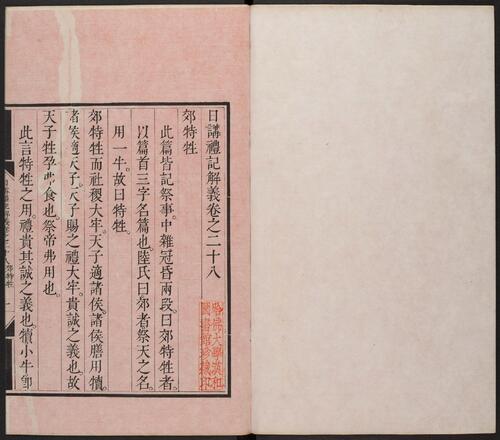 日講禮記解義卷之二十八
郊特牲
此篇皆記祭事。中雜冠昏兩段。曰郊特牲者。
以篇首三字名篇也。陸氏曰郊者祭天之名。
用一牛。故曰特牲。
郊特牲而社稷大牢。天子適諸侯。諸侯膳用犢。
諸侯適天子。天子賜之禮大牢。貴誠之義也。故
天子牲孕弗食也。祭帝弗用也。
此言特牲之用。禮貴其誠之義也。犢小牛。郇
郊特牲
一
哈佛大學漢和
圖書館珍藏印